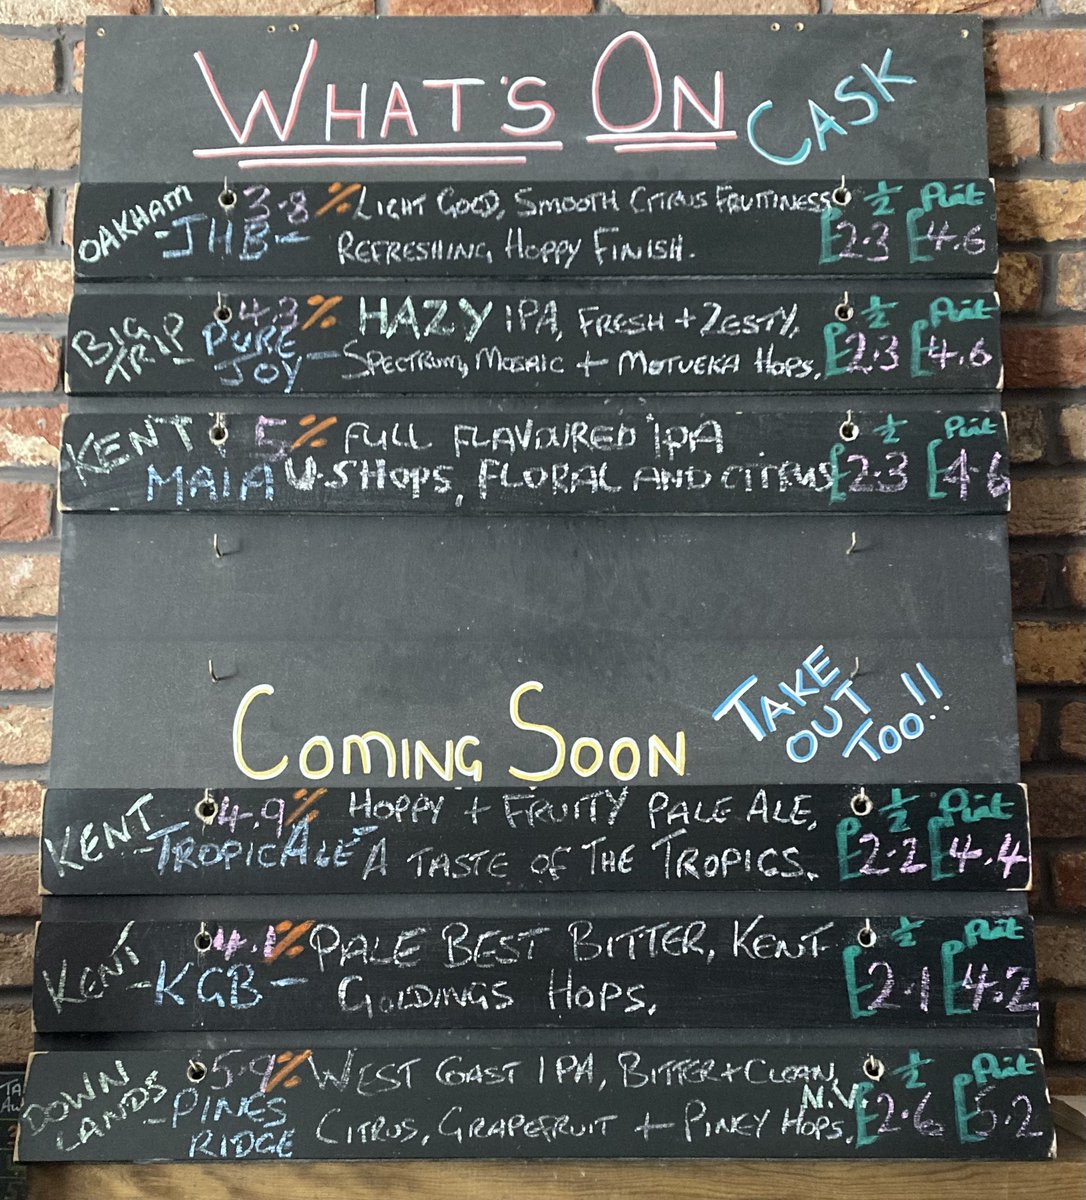 WHAT'S ON CASK
OAKHAM 3.8% LIGHT GOLD, SMOOTH CITRUS FRUITINESS ½ Pint
-JHB- REFRESHING HOPPY FINISH. £2.3 £4.6
BIG TRIP- 4.3% HAZY IPA, FRESH + ZESTY, ½ Pint
PURE JOY - SPECTRUM, MOSAIC + MOTUEKA HOPS. £2.3 £4.6
KENT 5% FULL FLAVOURED IPA ½ Pint
MAIA U.S HOPS, FLORAL AND CITRUS £2.3 £4.6
COMING SOON
TAKE
OUT
TOO!!
KENT 4.9% HOPPY + FRUITY PALE ALE, ½ Pint
-TROPICALE- A TASTE OF THE TROPICS. £2.2 £4.4
KENT 4.1% PALE BEST BITTER, KENT ½ Pint
-KGB- GOLDINGS HOPS. £2.1 £4.2
DOWN LANDS 5.9% WEST COAST IPA, BITTER + CLEAN, ½ Pint
N.V.
-PINES RIDGE CITRUS, GRAPEFRUIT + PINEY HOPS. £2.6 £5.2